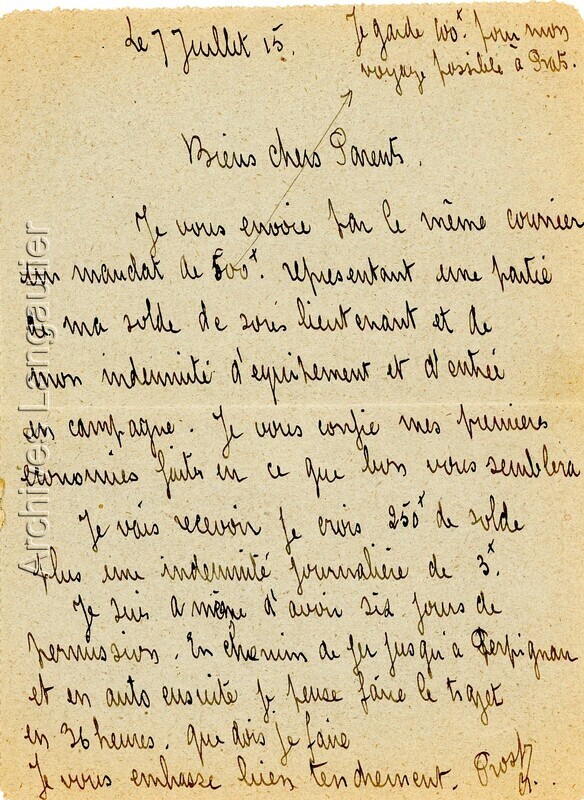 Le 7 Juillet 15.
Je garde 100ᶠ. pour mon
voyage possible à Prats.
Biens chers Parents.
Je vous envoie par le même courrier
un mandat de 500ᶠ. representant une partie
de ma solde de sous lieutenant et de
mon indemnité d'equipement et d'entrée
en campagne. Je vous confie mes premieres
économies faites en ce que bon vous semblera
Je vais recevoir je crois 250ᶠ de solde
plus une indemnité journalière de 3ᶠ.
Je suis a même d'avoir six jours de
permission. En chemin de fer jusqu'a Perpignan
et en auto ensuite je pense faire le trajet
en 36 heures. que dois je faire
Je vous embrasse bien tendrement.
Archives Langautier